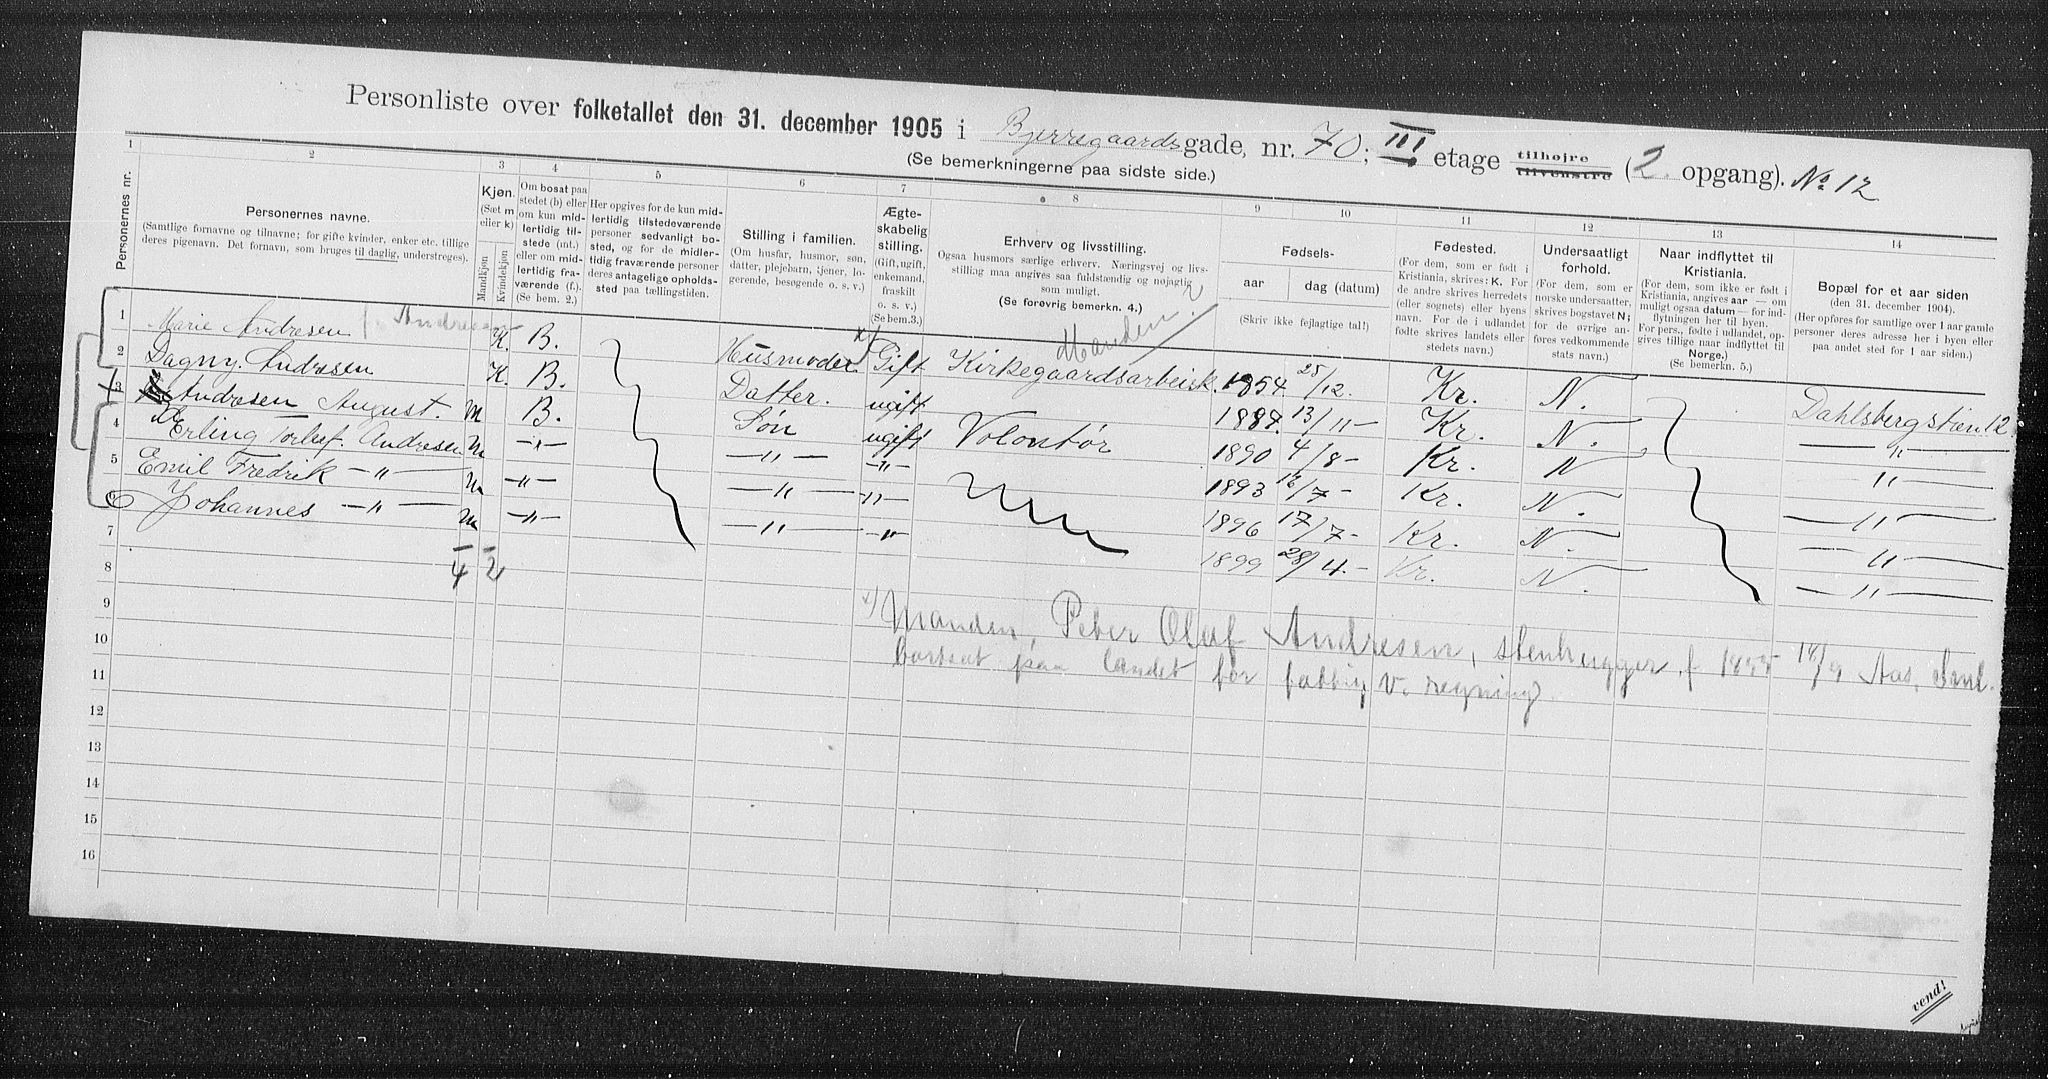 Personliste over folketallet den 31. december 1905 i Bjerregaardsgade, nr. 70; III etage tilhøjre tilvenstre (2 opgang). No 12
(Se bemerkningerne paa sidste side.)
1 2 3 4 5 6 7 8 9 10 11 12 13 14
Personernes nr.
Personernes navne.
(Samtlige fornavne og tilnavne; for gifte kvinder, enker etc. tillige
deres pigenavn. Det fornavn, som bruges til daglig, understreges).
Kjøn.
(Sæt m
eller k)
Mandkjøn
Kvindekjøn
Om bosat paa
stedet (b) eller
om kun mid-
lertidig til-
stede (mt.)
eller om mid-
lertidig fra-
værende (f.).
(Se bem. 2.)
Her opgives for de kun mid-
lertidig tilstedeværende
personer sedvanligt bo-
sted, og for de midler-
tidig fraværende personer
deres antagelige opholds-
sted paa tællingstiden.
Stilling i familien.
(Om husfar, husmor, søn,
datter, plejebarn, tjener, lo-
gerende, besøgende o. s. v.)
Ægte-
skabelig
stilling.
(Gift, ugift,
enkemand,
fraskilt
o. s. v.)
(Se bem.3.)
Erhverv og livsstilling.
Ogsaa husmors særlige erhverv. Næringsvej og livs-
stilling maa angives saa fuldstændig og nøjagtig
som muligt.
(Se forøvrig bemerkn. 4.)
Fødsels-
aar
dag (datum)
(Skriv ikke fejlagtige tal!)
Fødested.
(For dem, som er født i
Kristiania, skrives: K. For
de andre skrives herredets
(eller sognets) eller byens
navn. For de i udlandet
fødte skrives landets eller
stedets navn.)
Undersaatligt
forhold.
(For dem, som er
norske undersaatter,
skrives bogstavet N;
for de øvrige an-
føres vedkommende
stats navn.)
Naar indflyttet til
Kristiania.
(For dem, som ikke er født i
Kristiania, angives aar — om
muligt ogsaa datum — for ind-
flytningen her til byen.
For pers., fødte i udlandet, op-
gives tillige naar indflyttet til
Norge.)
(Se bemerkn. 5.)
Bopæl for et aar siden
(den 31. december 1904).
(Her opføres for samtlige over 1 aar gamle
personer deres adresse her i byen eller
paa andet sted for 1 aar siden.)
1 Marie Andresen f. Andresen K. B. Husmoder. x) Gift Kirkegaardsarbeisk. Manden. 1854. 25/12. Kr. N. Dahlsbergstien 12
2 Dagny. Andresen K. B. Datter. ugift 1887. 13/11 — Kr. N. — " —
3 Andresen August. M B. Søn ugift Volontør 1890 4/8 — Kr. N — " —
4 Erling Torleif. Andresen M — " — — " — — " — 1893 16/7 — Kr. N. — " —
5 Emil Fredrik — " — M — " — — " — — " — 1896 17/7 — Kr. N. — " —
Johannes — " — M — " — — " — — " — 1899 28/4. — Kr. N. — " —
7
4 2
8
9
x) Manden, Peter Oluf Andresen, stenhugger, f 1855 18/9 Aas, Sml.
10
bortsat paa landet for fattig v. regning
11
12
13
14
15
16
vend!